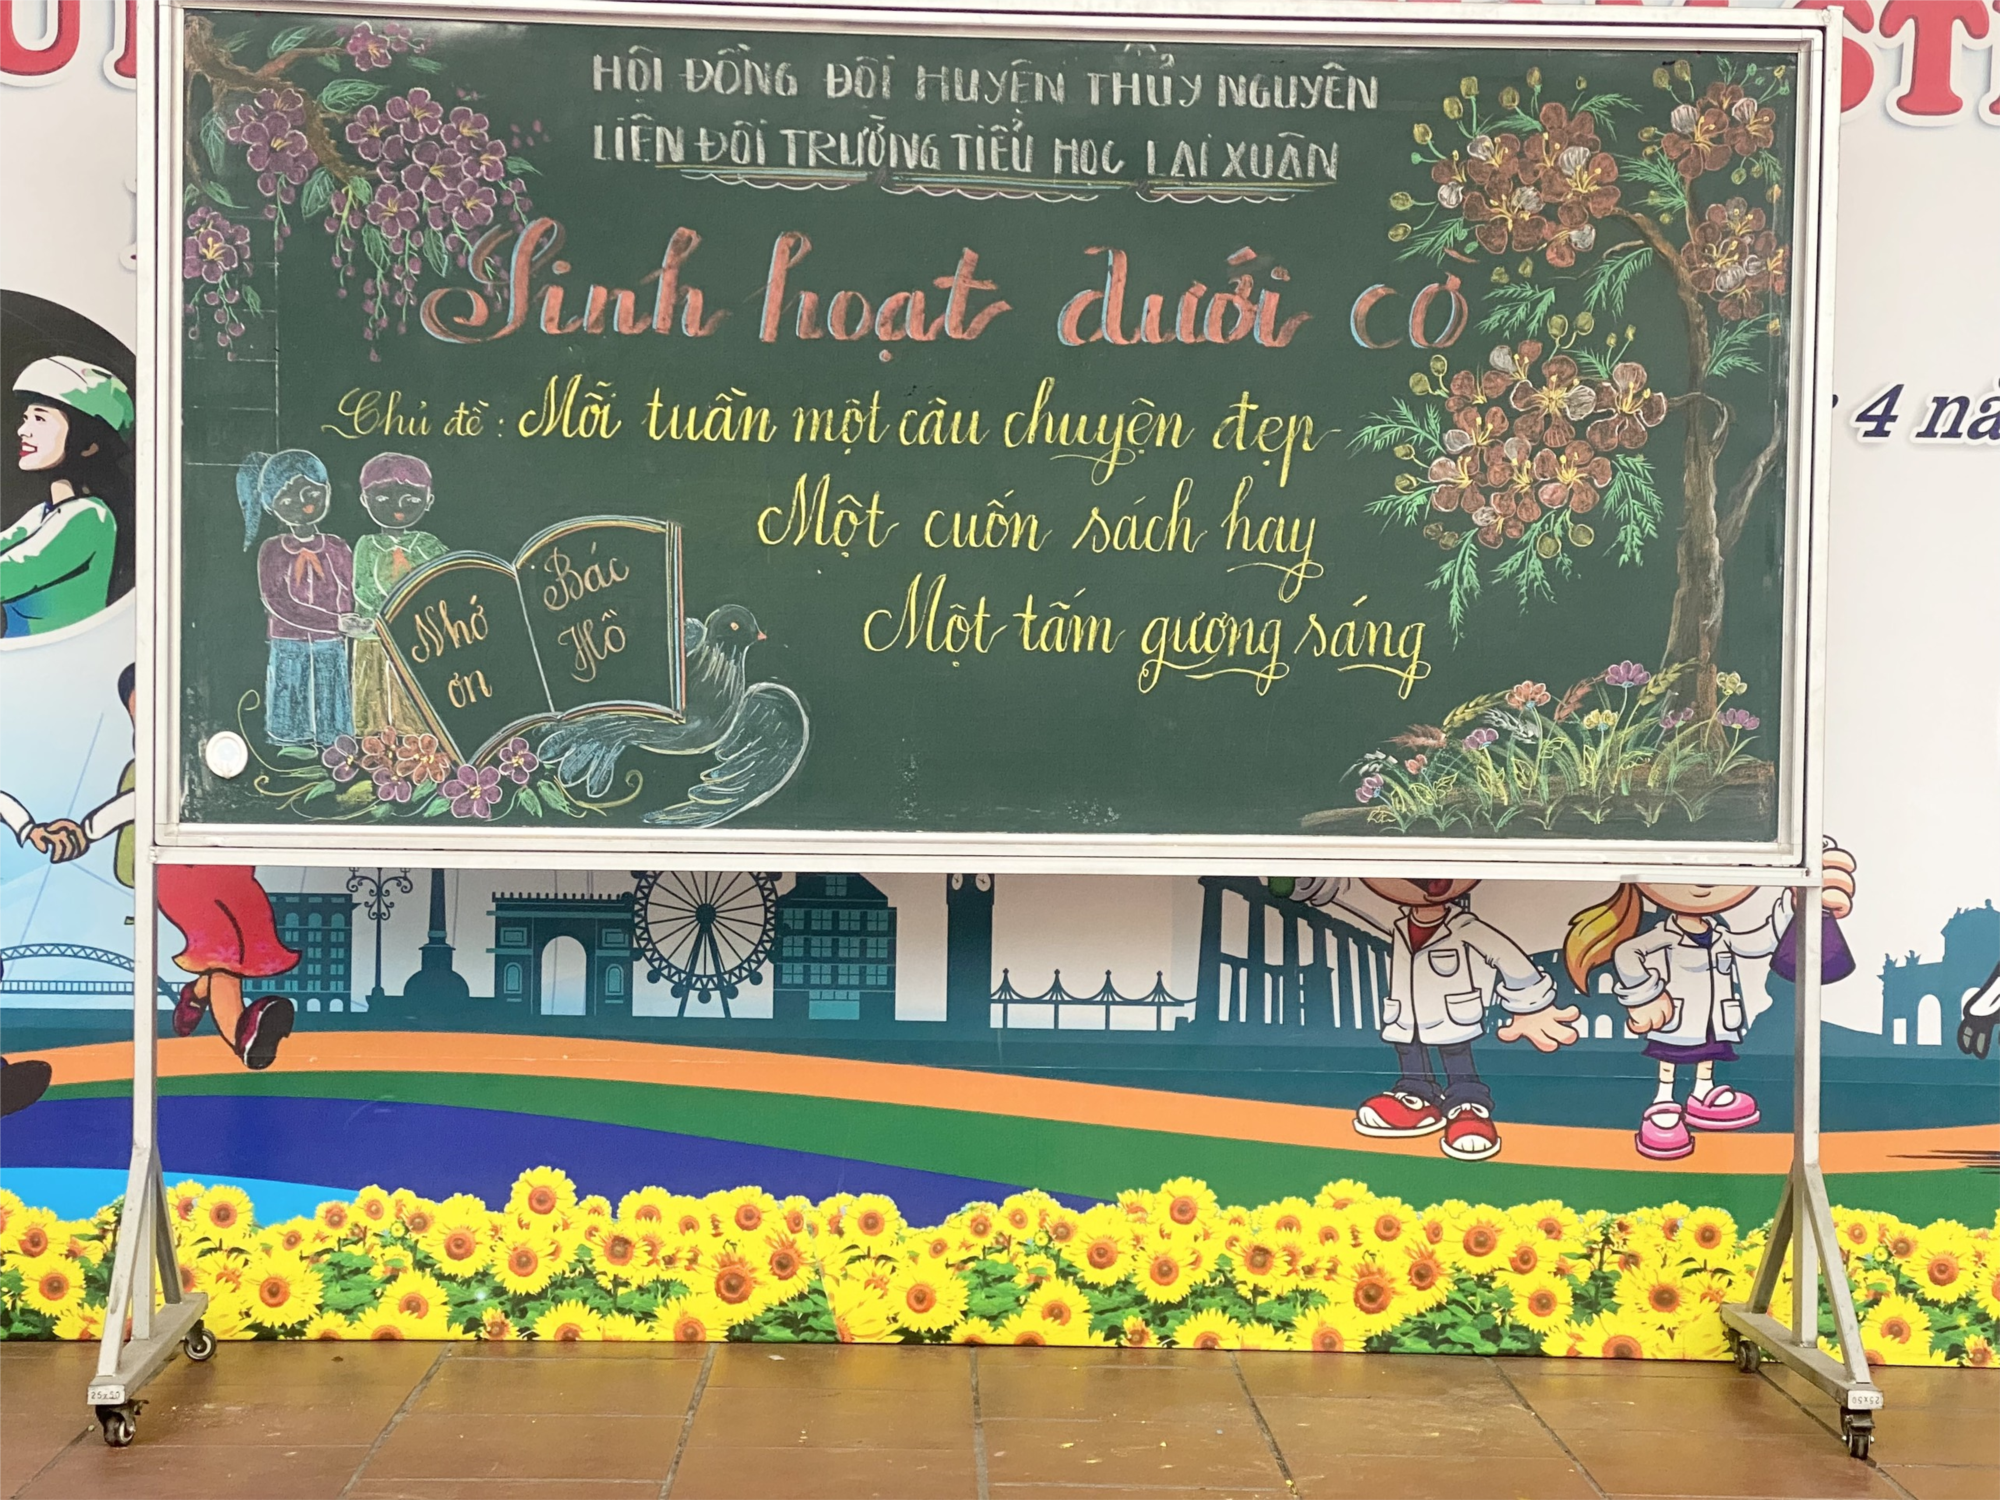 HỘI ĐỒNG ĐỘI HUYỆN THỦY NGUYÊN
LIÊN ĐỘI TRƯỜNG TIỂU HỌC LẠI XUÂN
Sinh hoạt dưới cờ
Chủ đề: Mỗi tuần một câu chuyện đẹp
Một cuốn sách hay
Một tấm gương sáng
Nhớ ơn
Bác Hồ
4 nă
25x50
25x50